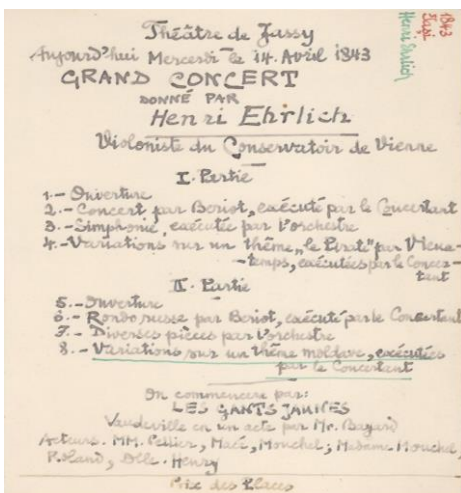 Théâtre de Jassy
Aujourd'hui Mercredi le 14. Avril 1843
GRAND CONCERT
DONNÉ PAR
Henri Ehrlich
Violoniste du Conservatoir de Vienne
I. Partie
1.- Ouverture
2.- Concert par Beriot, exécuté par le Concertant
3.- Simphonie, exécutée par l'orchestre
4.- Variations sur un thême "le Pirate" par Vieux-
-temps, exécutées par le Concer-
tant
II. Partie
5.- Ouverture
6.- Rondo russe par Beriot, exécuté par le Concertant
7.- Diverses pièces par l'orchestre
8.- Variations sur un thême moldave, exécutées
par le Concertant
On commencera par:
LES GANTS JAUNES
Vaudeville en un acte par Mr. Bayard
Acteurs. MM. Pellier, Macé, Mouchel; Madame Mouchel,
Roland, Dlle. Henry
Prix des Places
1843
Iaşi
Henri Ehrlich